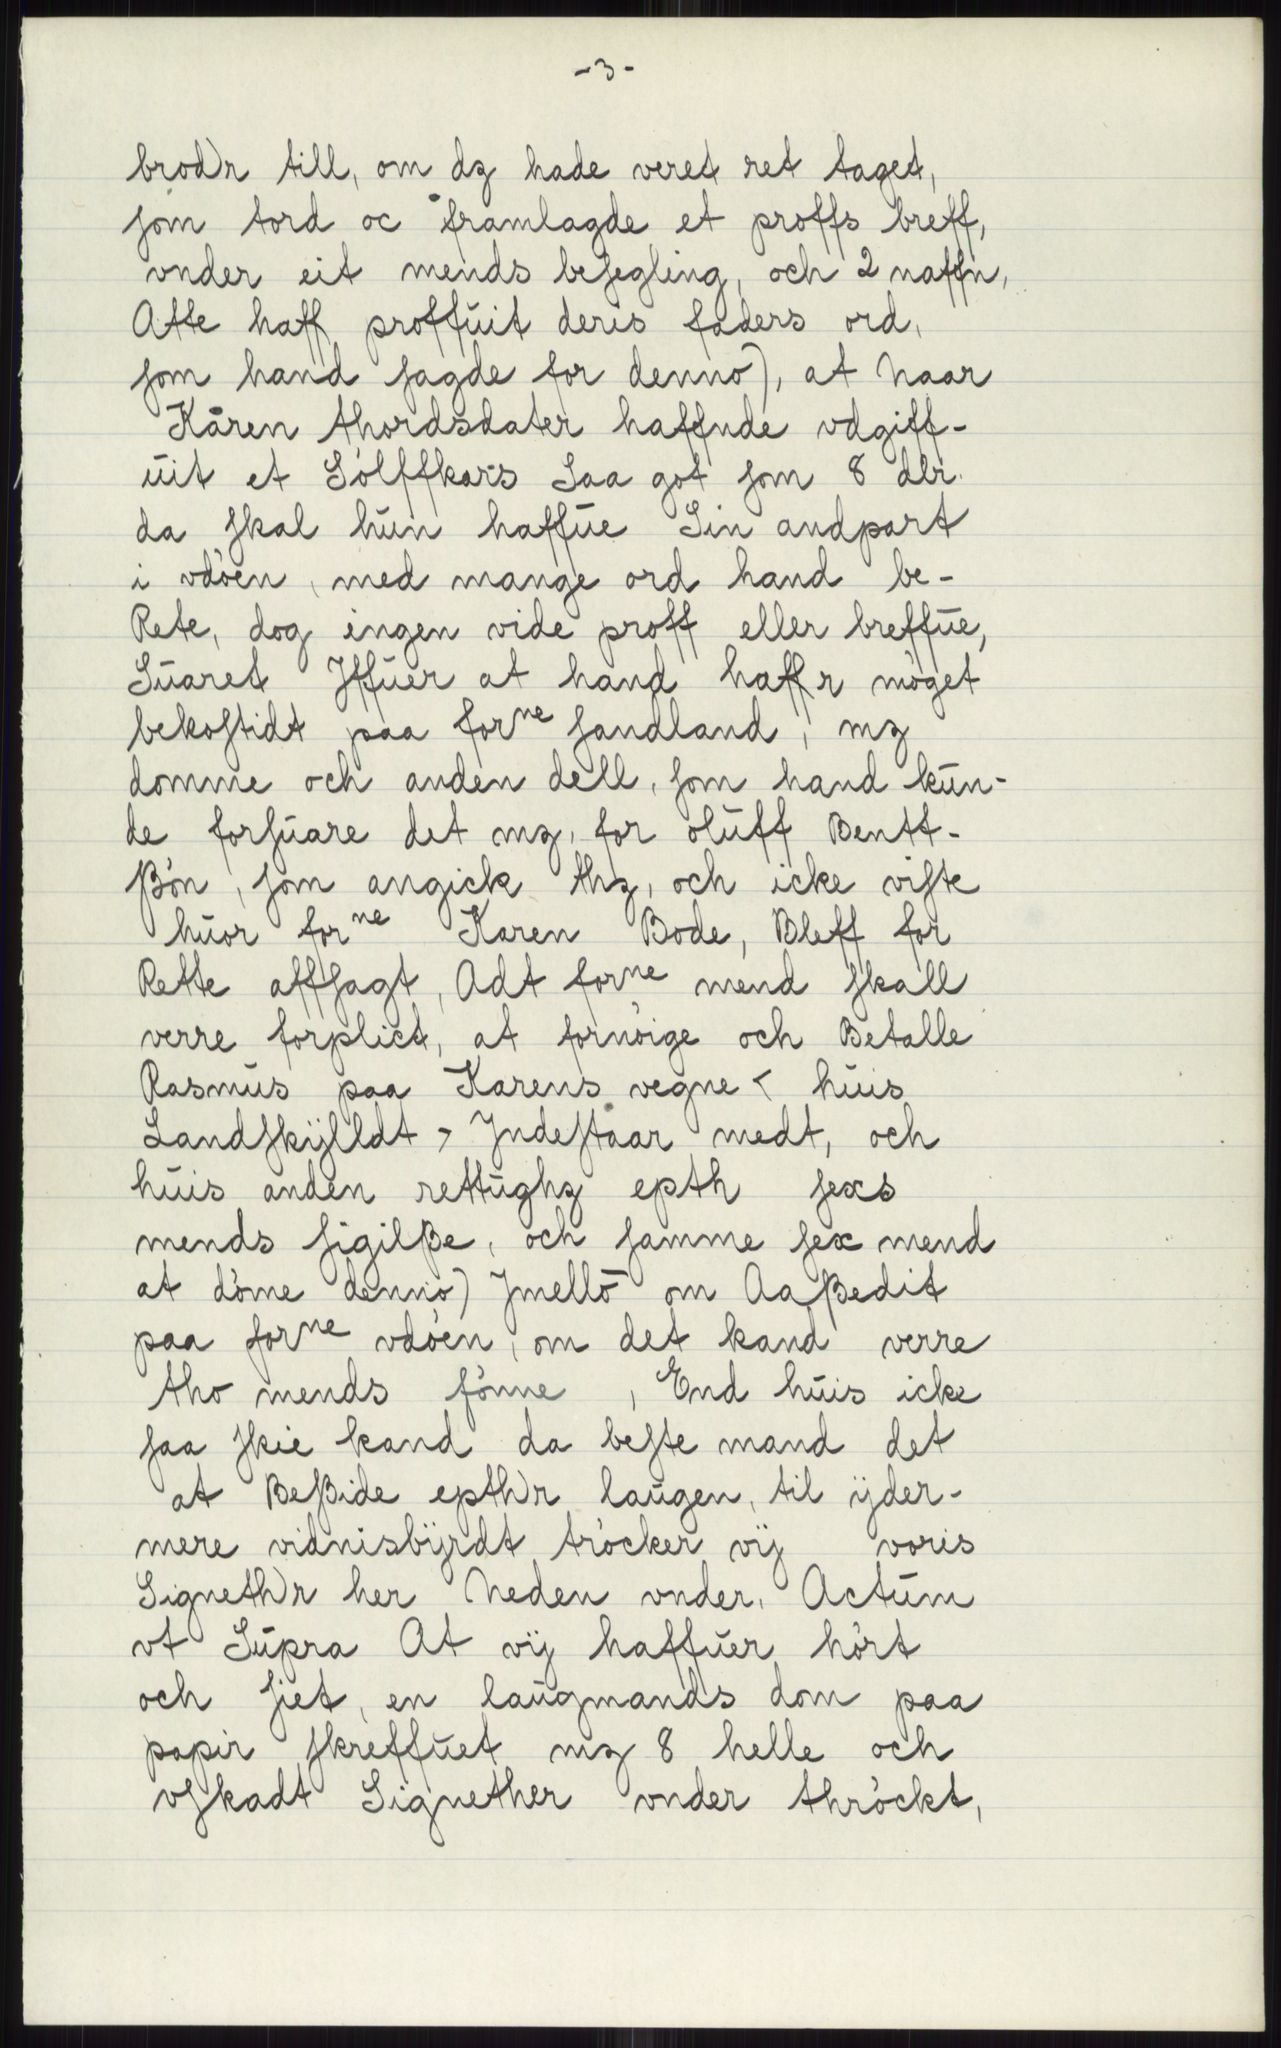 -3-
brod)r till, om dz hade veret ret taget,
som tord oc framlagde et proffs breff,
vnder eit mends besegling, och 2 naffn,
Atte haff proffuit deris faders ord,
som hand sagde for denno), at Naar
Karen thordsdater haffnde vdgiff-
uit et Sølffkars Saa got som 8 dlr.
da skal hun haffue Sin andpart
i vdøen, med mange ord hand be-
Rete, dog ingen vide proff eller breffue,
Suaret Jffuer at hand haffr møget
bekostidt paa forne sandland, mz
domme och anden dell, som hand kun-
de forsuare det mz, for oluff Bentt-
ßøn, som angick thz, och icke viste
huor forne Karen Bode, Bleff for
Rette affsagt, Adt forne mend skall
verre forplict, at fornøige och Betalle
Rasmus paa Karens vegne < huis
Landskÿlldt > Jndestaar medt, och
huis anden rettughz epth sexs
mends sigilße, och samme sex mend
at døme denno) Jmellō om Aaßedit
paa forne vdøen, om det kand verre
tho mends fønne, End huis icke
saa skie kand da beste mand det
at Beßide epth)r laugen, til ÿder-
mere vidnisbÿrdt trøcker vij voris
Signeth)r her Neden vnder, Actum
vt Supra At vij haffuer hørt
och siet, en laugmands dom paa
papir skreffuet mz 8 helle och
vskadt Signether vnder thrøckt,